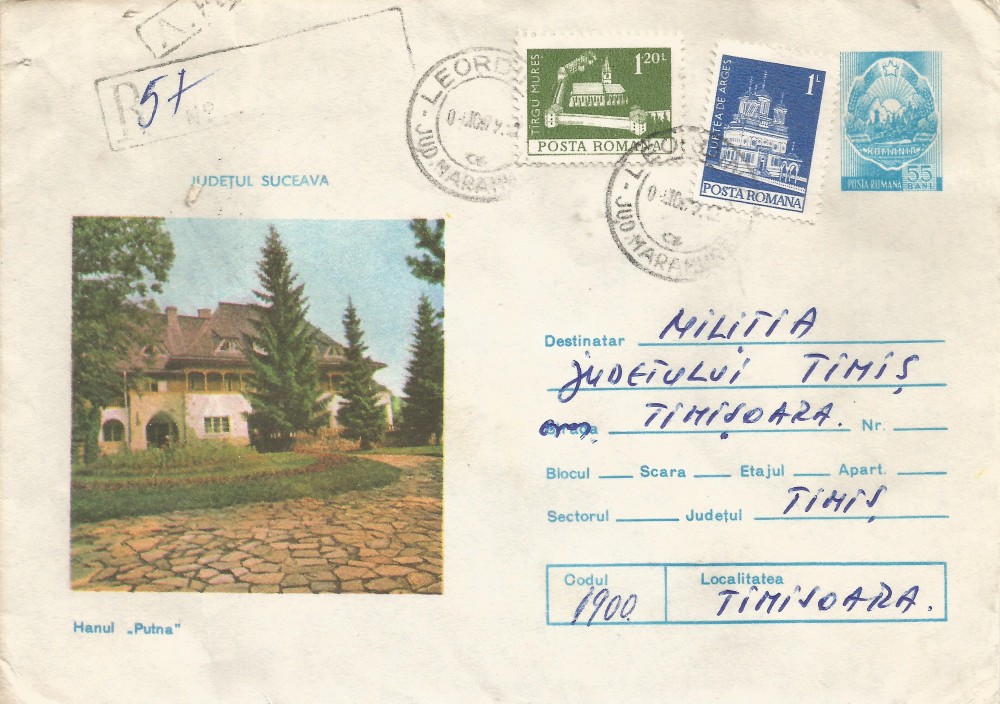 R
57
No
LEORD
JUD. MARAMUR
TÎRGU MUREȘ
1 20 L
POSTA ROMANA
CURTEA DE ARGEȘ
1 L
POSTA ROMANA
LEORD
JUD. MARAMUR
ROMANIA
POSTA ROMANA 55 BANI
JUDEȚUL SUCEAVA
Destinatar MILIȚIA
JUDEȚULUI TIMIȘ
TIMIȘOARA. Nr.
Blocul Scara Etajul Apart.
Sectorul Județul TIMIȘ
Codul Localitatea
1900 TIMIȘOARA.
Hanul „Putna"